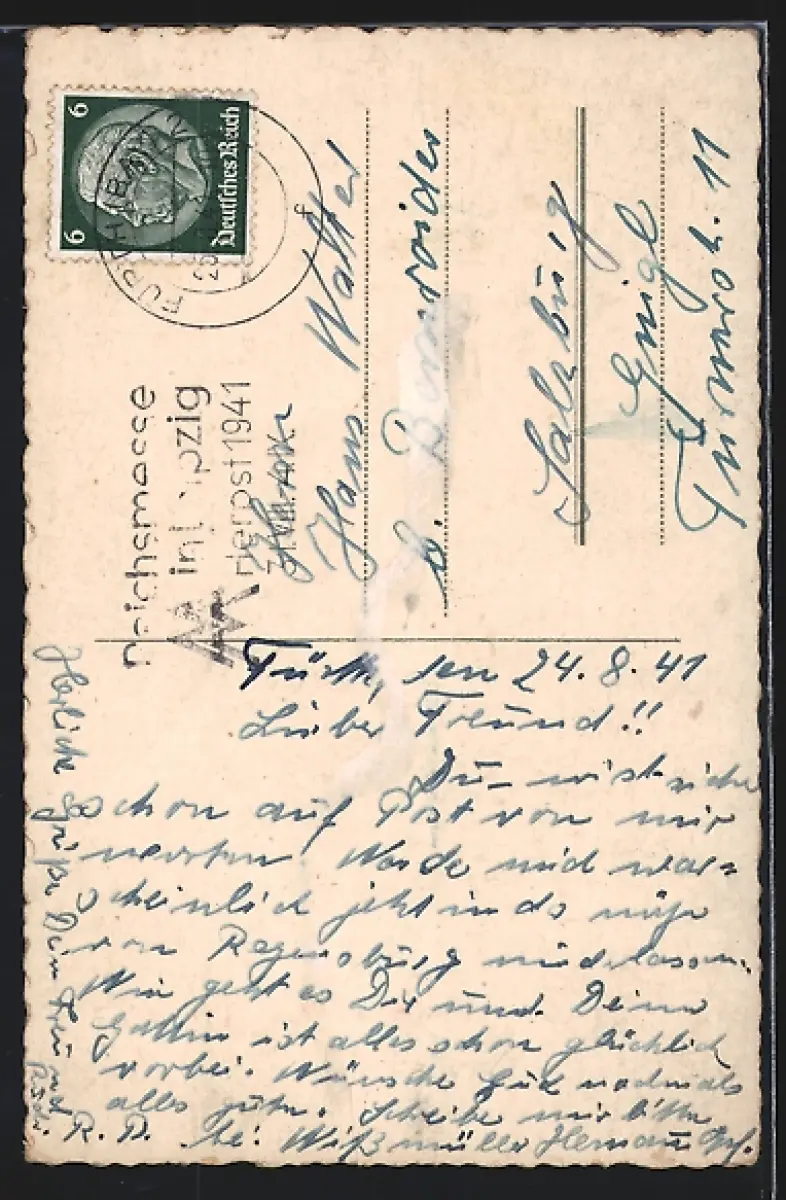 6
6
Deutsches Reich
FÜRTH (BAY)
Reichsmesse
in Leipzig
Herbst 1941
Hans Walter
Salzburg
Gnigl
11
Fürth, den 24.8.41
Lieber Freund!!
Du wirst sicher
schon auf Post von mir
warten. Werde mich war=
scheinlich jetzt in da nähe
von Regensburg niederlassen.
Wie geht es Dir und Deine
Gattin ist alles schon glücklich
vorbei. Wünsche Euch nochmals
alles gute. Schreibe mir bitte
R. P. bei Wißmüller
Herliche Grüße Dein Freund